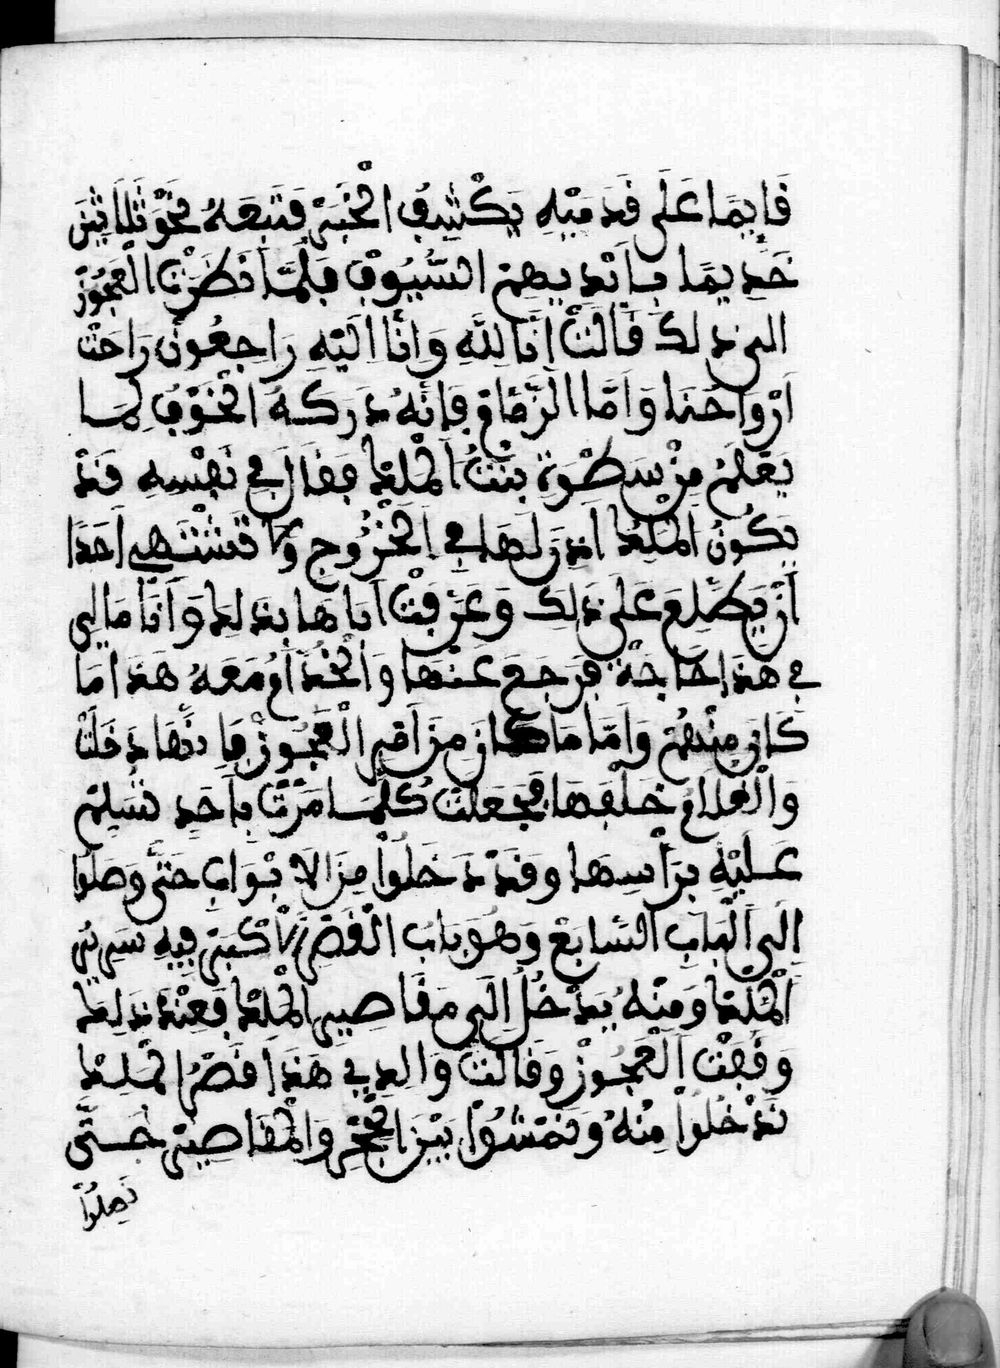 فَإِيمَا عَلَى قَدَمَيْهِ يَكْشِفُ الْخَبَرَ فَتَبَعَهُ نَحْوَ ثَلَاثِينَ
خَدِيمًا بِأَيْدِيهِمْ السُّيُوفُ فَلَمَّا نَظَرَتْ الْعَجُوزُ
الى ذلك قَالَتْ إِنَّا لِلَّهِ وَإِنَّا إِلَيْهِ رَاجِعُونَ رَاحَتْ
أَرْوَاحُنَا وَأَمَّا الزَّمَّار فَإِنَّهُ دَرَكَهُ الْخَوْفُ لِمَا
يَعْلَمُ مِنْ سَطْوَةِ بِنْتُ الْمَلِكِ فَقَالَ فِي نَفْسِهِ قَدْ
يَكُونُ الْمَلِكُ أَذِنَ لَهَا فِي الْخُرُوجِ وَلَا تَشْتَهِي أَحَدًا
أَنْ يَطَّلِعَ عَلَى ذَلِكَ وَعَرَفَتْ أَبَاهَا بِذَلِكَ وَأَنَا مَا لِي
فِي هَذَا حَاجَةٌ فَرَجَعَ عَنْهَا وَالْخُدَّامُ مَعَهُ هَذَا مَا
كَانَ مِنْهُمْ وَأَمَّا مَا كَانَ مِنْ أَمْرِ الْعَجُوزِ فَإِنَّهَا دَخَلَتْ
وَالْغُلَامُ خَلْفَهَا فَجَعَلَتْ كُلَّمَا مَرَّتْ بِأَحَدٍ تُسَلِّمْ
عَلَيْهِ بِرَأْسِهَا وَقَدْ دَخَلُوا مِنَ الْأَبْوَابِ حَتَّى وَصَلُوا
إِلَى الْبَابِ السَّابِعْ وَهُوَ بَابُ الْقَصْرِ الْأَكْبَرِ فِيهِ سَرِيرُ
الْمَلِكِ وَمِنْهُ يَدْخُلُ إِلَى مَقَاصِيرِ الْمَلِكِ فَعِنْدَ ذَلِكَ
وَقَفَتْ الْعَجُوزْ وَقَالَتْ وَالِدِي هَذَا قَصْرُ الْمَلِكْ
نَدْخُلُوا مِنْهُ وَنَمْشُوا بَيْنَ الْحُجَرِ وَالْمَقَاصِيرِ حَتَّى
نَصِلُوا